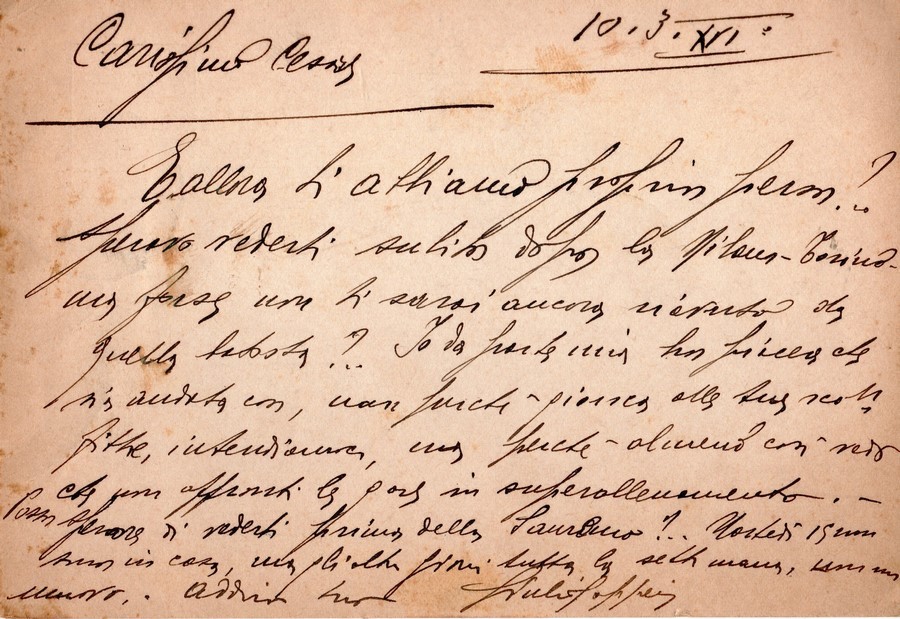 Carissimo Cesare
10.3.XVI.
E allora ti abbiamo proprio perso!..
Speravo vederti subito dopo la Milano-Torino
ma forse non ti sarai ancora riavuto da
quella batosta?.. Io da parte mia ho piacere che
sia andata così, non perchè gioisca alle tue scon-
fitte, intendiamoci, ma perchè almeno così vedo
che non affronti le gare in superallenamento. -
Posso sperare di vederti prima della Sanremo?.. Martedì 15 non
sono in casa, ma gli altri giorni tutta la settimana, non mi
muovo. Addio tuo